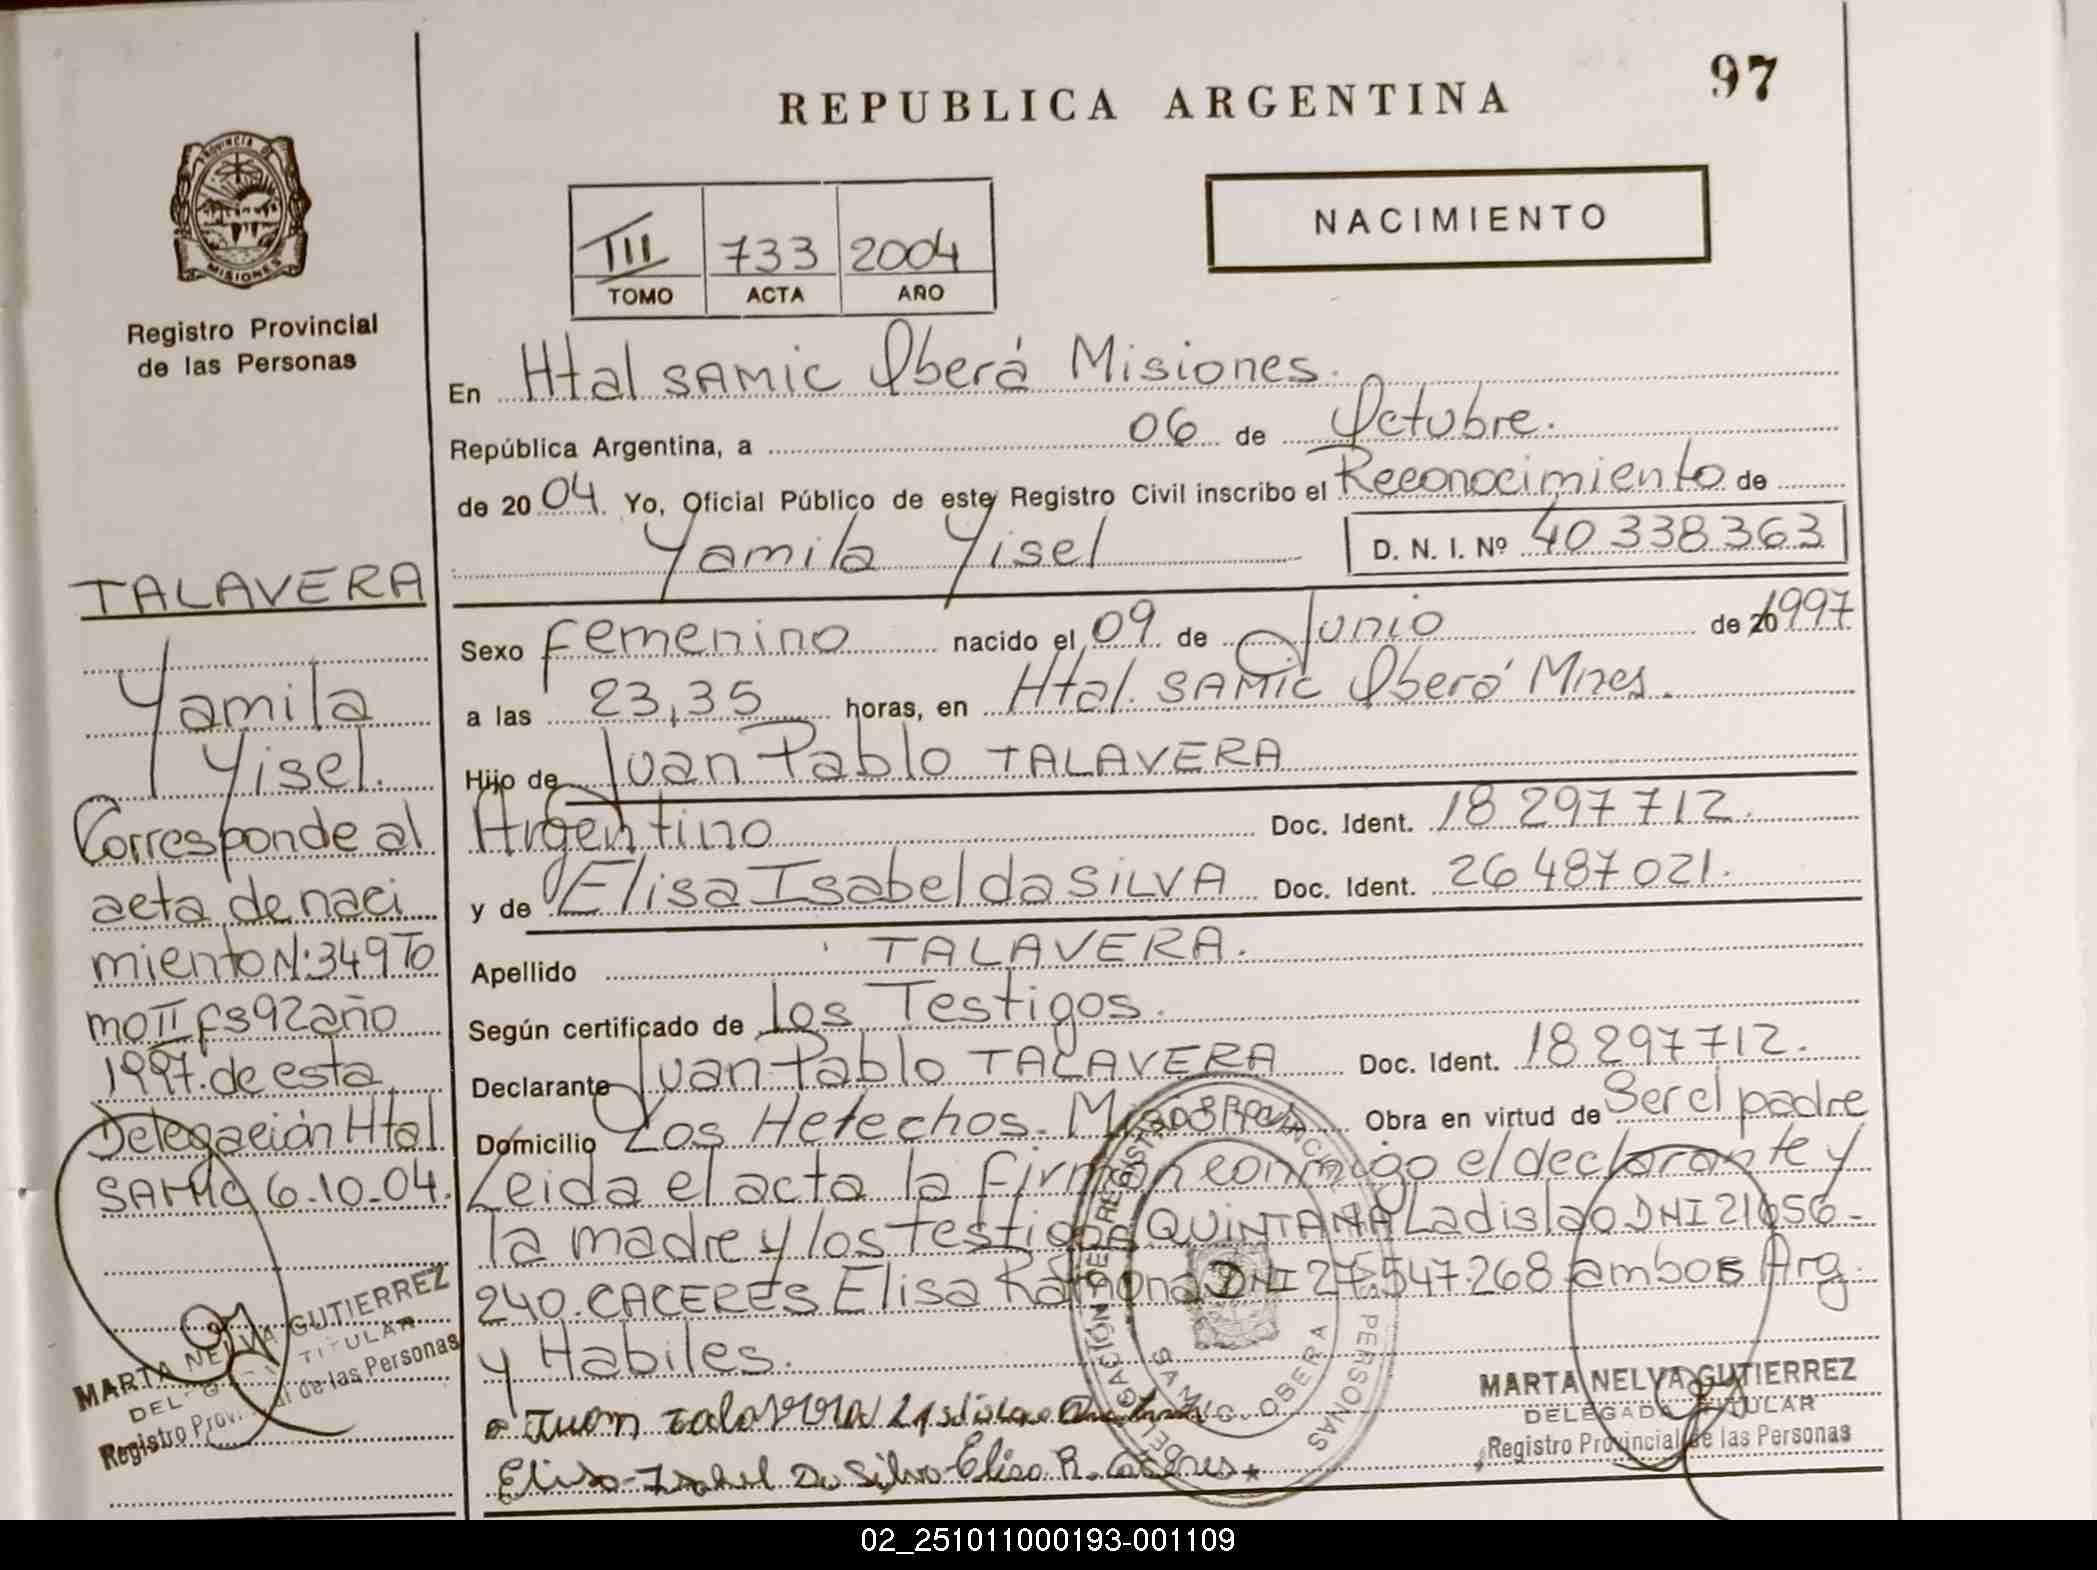 REPUBLICA ARGENTINA
97
PROVINCIA DE
MISIONES
Registro Provincial
de las Personas
III 733 2004
TOMO ACTA AÑO
NACIMIENTO
En Htal SAMIC Oberá Misiones.
República Argentina, a 06 de Octubre.
de 2004. Yo, Oficial Público de este Registro Civil inscribo el Reconocimiento de
Yamila Yisel
D. N. I. Nº 40 338 363
Sexo femenino nacido el 09 de Junio de 20 1997
a las 23,35 horas, en Htal. SAMIC Oberá Mnes.
Hijo de Juan Pablo TALAVERA
Argentino Doc. Ident. 18 297 712.
y de Elisa Isabel da SILVA Doc. Ident. 26 487 021.
Apellido TALAVERA.
Según certificado de Los Testigos.
Declarante Juan Pablo TALAVERA Doc. Ident. 18 297 712.
Domicilio Los Helechos. Obra en virtud de Ser el padre
Leida el acta la firman conmigo el declarante y
la madre y los testigos QUINTANA Ladislao DNI 21656-
240. CACERES Elisa Ramona DNI 27.547.268 ambos Arg.
y Habiles.
Juan Talavera
Elisa Isabel Da Silva Elisa R. Caceres
DELEGACIÓN DEL REGISTRO PROVINCIAL
DE LAS PERSONAS
OBERA
MARTA NELVA GUTIERREZ
DELEGADA TITULAR
Registro Provincial de las Personas
TALAVERA
Yamila
Yisel.
Corresponde al
acta de naci
miento N: 349 To
mo II fs 92 año
1997. de esta
Delegación Htal
SAMIC 6-10-04.
MARTA NELVA GUTIERREZ
TITULAR
Registro Prov. de las Personas
02_251011000193-001109